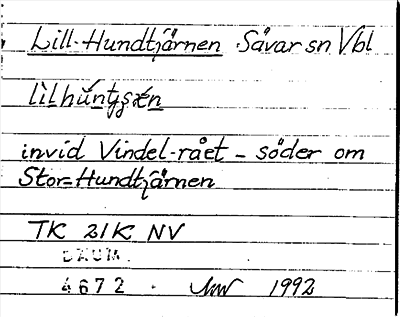 Lill-Hundtjärnen Sävar sn Vbl
invid Vindel-rået - söder om
Stor=Hundtjärnen
TK 21K NV
DAUM
4672 · 1992